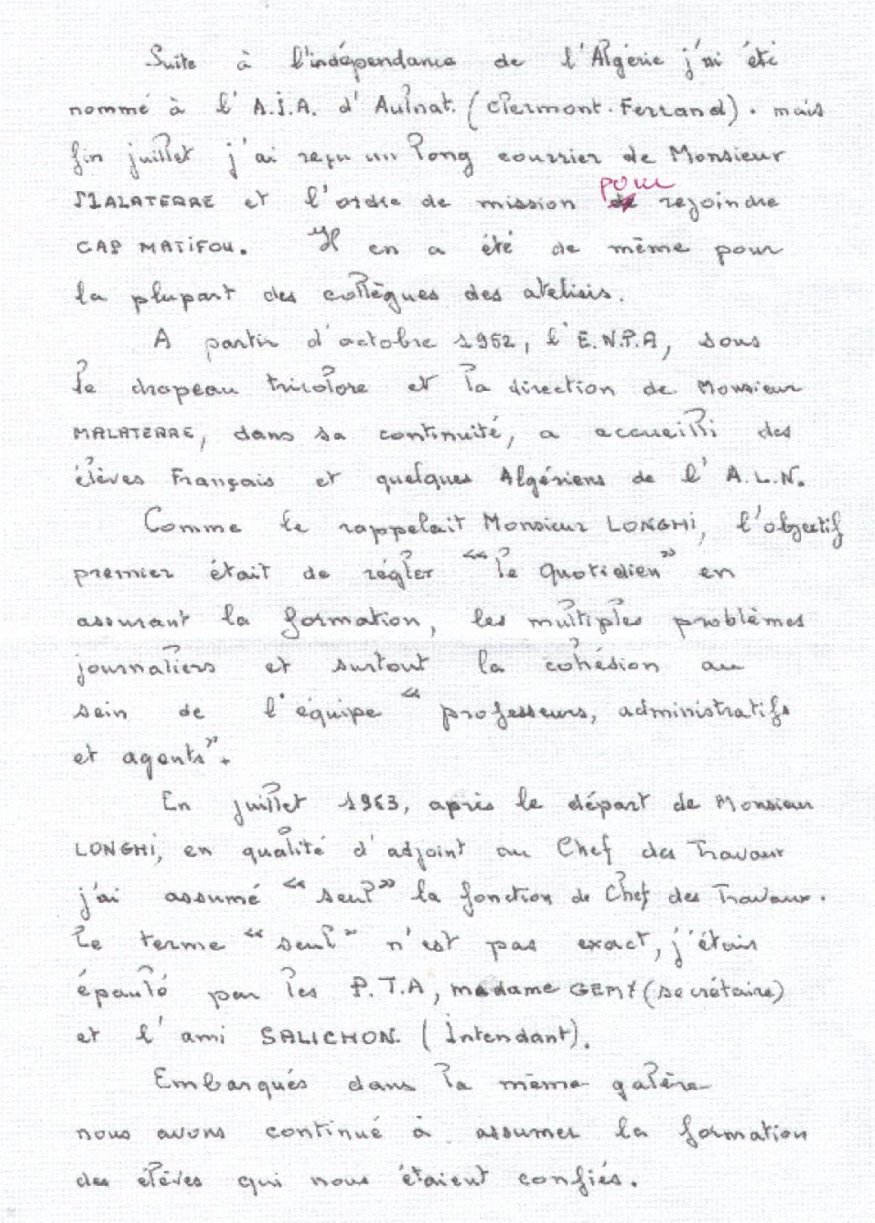 Suite à l'indépendance de l'Algérie j'ai été
nommé à l'A.I.A. d'Aulnat. (Clermont-Ferrand). mais
fin juillet j'ai reçu un long courrier de Monsieur
MALATERRE et l'ordre de mission pour rejoindre
CAP MATIFOU. Il en a été de même pour
la plupart des collègues des ateliers.
A partir d'octobre 1962, l'E.N.P.A, sous
le drapeau tricolore et la direction de Monsieur
MALATERRE, dans sa continuité, a accueilli des
élèves Français et quelques Algériens de l'A.L.N.
Comme le rappelait Monsieur LONGHI, l'objectif
premier était de régler "le quotidien" en
assurant la formation, les multiples problèmes
journaliers et surtout la cohésion au
sein de l'équipe "professeurs, administratifs
et agents".
En juillet 1963, après le départ de Monsieur
LONGHI, en qualité d'adjoint au Chef des Travaux
j'ai assumé "seul" la fonction de Chef des Travaux.
Le terme "seul" n'est pas exact, j'étais
épaulé par les P.T.A, madame GEMY (secrétaire)
et l'ami SALICHON. (Intendant).
Embarqués dans la même galère
nous avons continué à assumer la formation
des élèves qui nous étaient confiés.